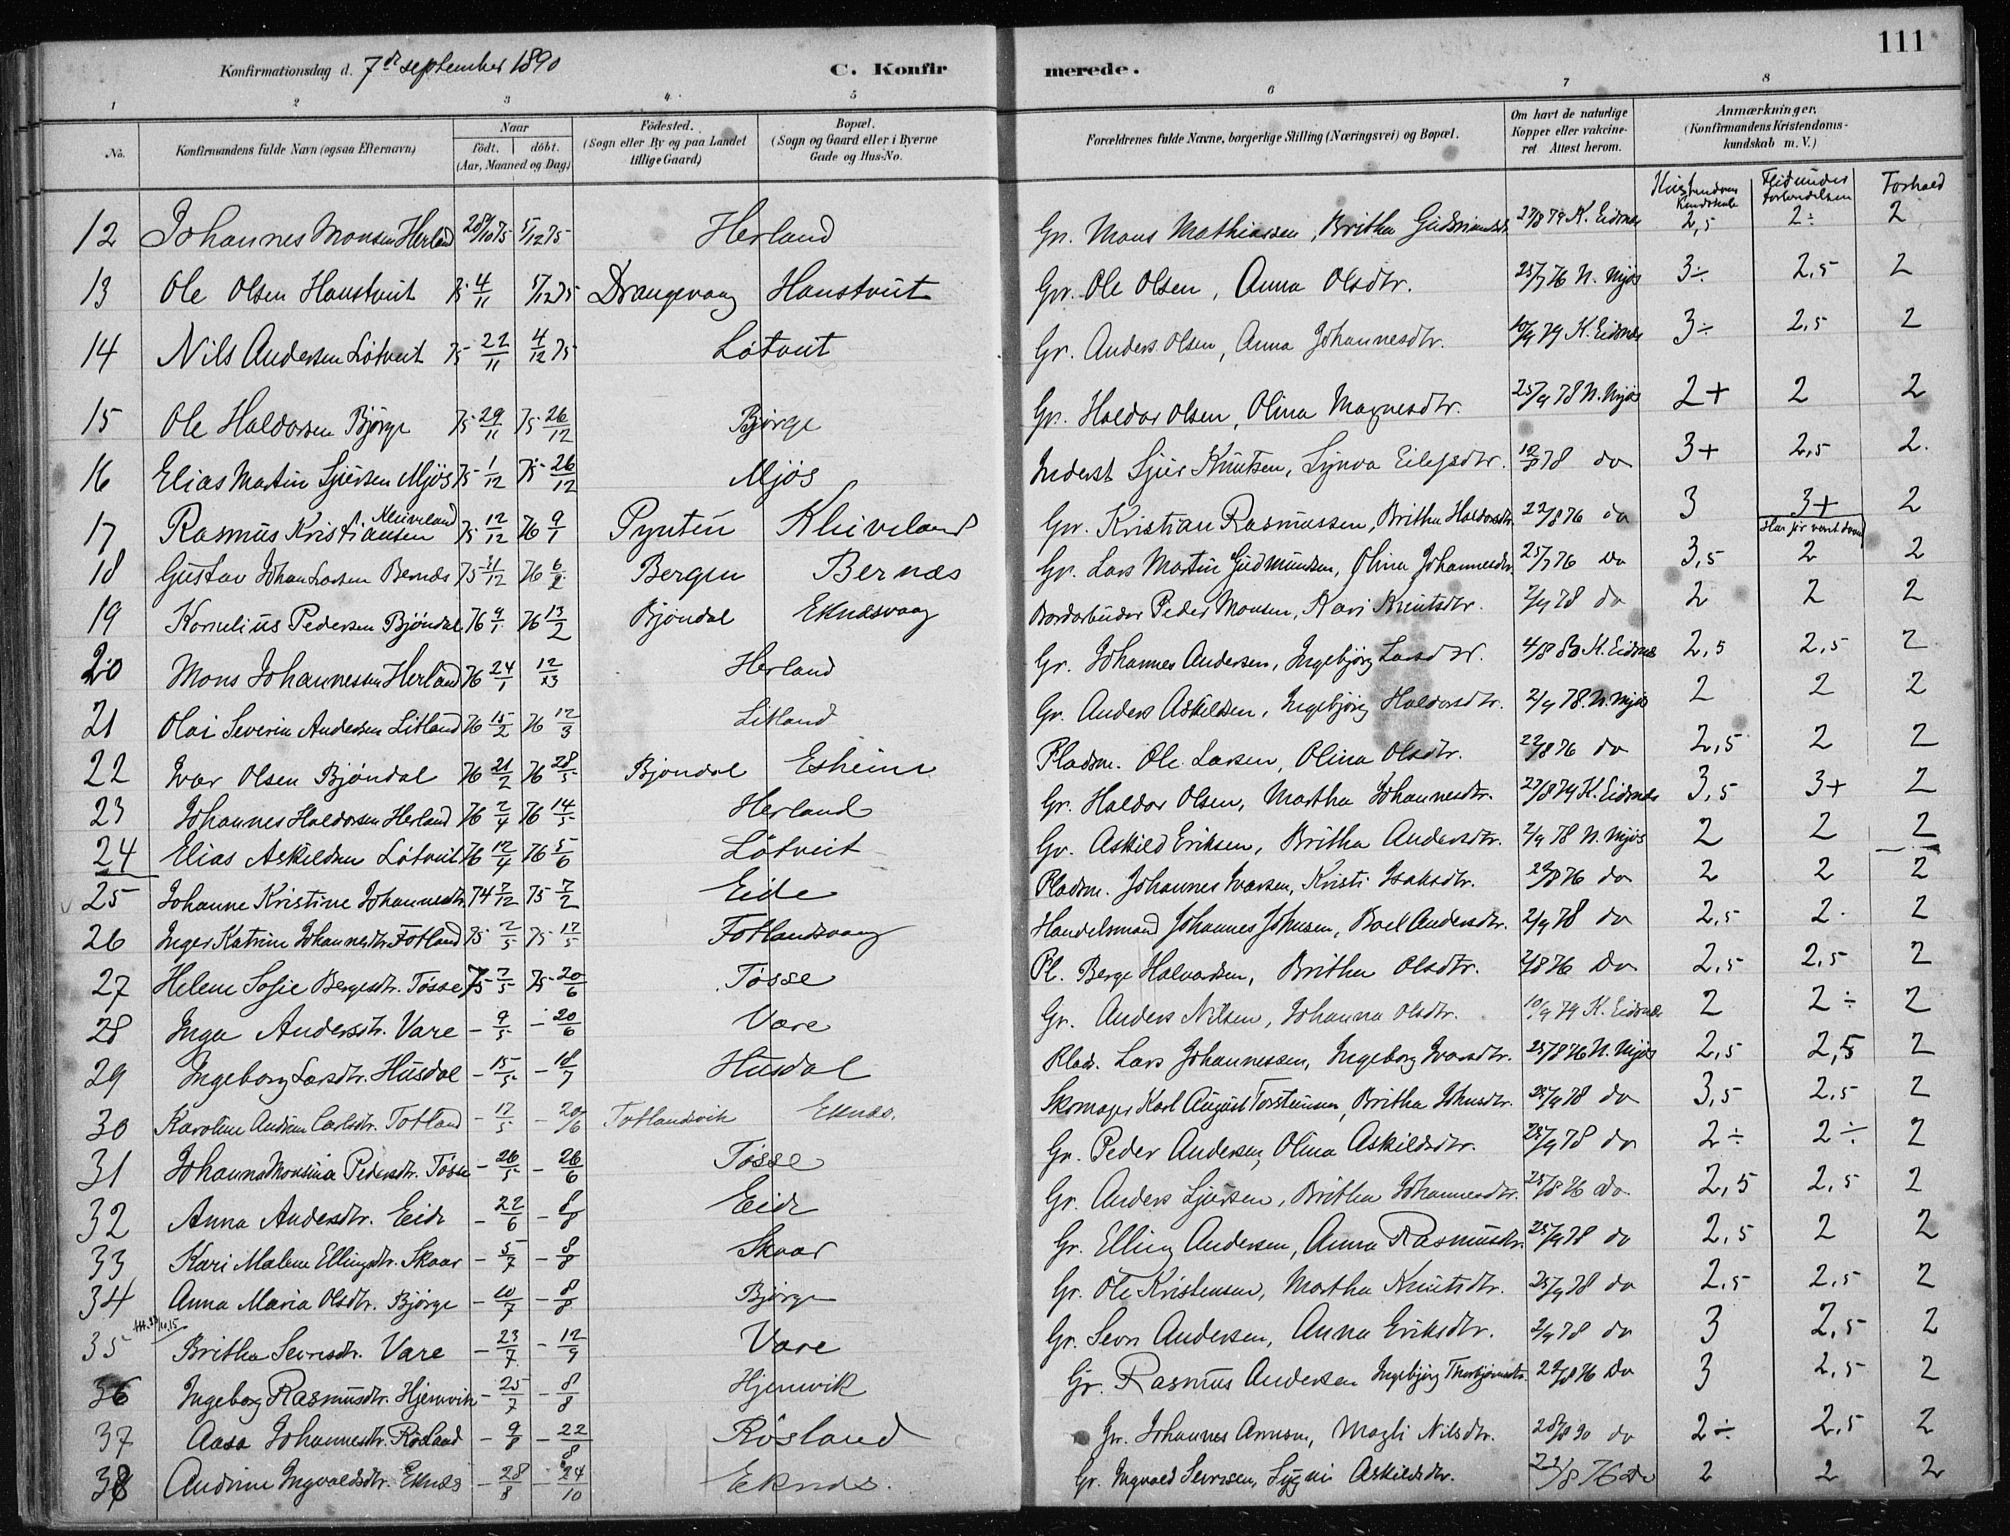 111
Konfirmationsdag d. 7de september 1890 C. Konfirmerede.
1 2 3 4 5 6 7 8
No. Konfirmandens fulde Navn (ogsaa Efternavn) Naar født. døbt. (Aar, Maaned og Dag) Fødested. (Sogn eller By og paa Landet tillige Gaard) Bopæl. (Sogn og Gaard eller i Byerne Gade og Hus-No. Forældrenes fulde Navne, borgerlige Stilling (Næringsvei) og Bopæl. Om havt de naturlige Kopper eller vakcineret. Attest herom. Anmærkninger. (Konfirmandens Kristendomskundskab m. V.)
Kristendoms Kundskab Flid under Forberedelsen Forhold
12 Johannes Monsen Herland 28/10 75 5/12 75 Herland Gr. Mons Mathiassen, Britha Gudmundsdtr. 27/8 79 K. Eidsnes 2,5 2÷ 2
13 Ole Olsen Haustveit 75 4/11 5/12 75 Drangevaag Haustveit Gr. Ole Olsen, Anna Olsdtr. 25/7 76 N. Mjøs 3÷ 2,5 2
14 Nils Andersen Løtveit 75 22/11 4/12 75 Løtveit Gr. Anders Olsen, Anna Johannesdtr. 10/9 79 K. Eidsnes 3÷ 2,5 2
15 Ole Haldorsen Bjørge 75 29/11 75 26/12 Bjørge Gr. Haldor Olsen, Olina Magnesdtr. 25/9 78 N. Mjøs 2+ 2 2
16 Elias Martin Sjursen Mjøs 75 1/12 75 26/12 Mjøs Inderst Sjur Knutsen, Synva Eilefsdtr. 78 do 3+ 2,5 2
17 Rasmus Kristiansen Kleiveland 75 12/12 76 9/1 Pynten Kleiveland Gr. Kristian Rasmussen, Britha Haldorsdtr. 22/8 76 do 3 3+ 2
18 Gustav Johan Larsen Bernæs 75 31/12 76 6/2 Bergen Bernæs Gr. Lars Martin Gudmundsen, Olina Johannesdtr. 25/7 76 do 3,5 2 2
19 Kornelius Pedersen Bjøndal 76 9/1 76 13/2 Bjøndal Eknæsvaag Peder Monsen, Kari Knutsdtr. 2/9 78 do 2 2 2
20 Mons Johannessen Herland 76 24/1 12/3 Herland Gr. Johannes Andersen, Ingebjørg Larsdtr. 4/8 80 K. Eidsnes 2,5 2,5 2
21 Olai Severin Andersen Litland 76 15/2 76 12/3 Litland Gr. Anders Askildsen, Ingebjørg Haldorsdtr. 2/9 78 N. Mjøs 2 2 2
22 Ivar Olsen Bjøndal 76 21/2 76 28/5 Bjøndal Esheim Pladsm. Ole Larsen, Olina Olsdtr. 22/8 76 do 2,5 2 2
23 Johannes Haldorsen Herland 76 2/4 76 14/5 Herland Gr. Haldor Olsen, Martha Johannesdtr. 27/8 79 K. Eidsnes 3,5 3+ 2
24 Elias Askildsen Løtveit 76 12/4 76 5/6 Løtveit Gr. Askild Eriksen, Britha Andersdtr. 2/9 78 N. Mjøs 2 2 2
25 Johanne Kristine Johannesdtr. 74 7/12 75 7/2 Eide Pladsm. Johannes Ivarsen, Kristi Isaksdtr. 22/8 76 do 2 2 2
26 Inger Katrine Johannesdtr. Fotland 75 2/5 75 17/5 Fotlandsvaag Handelsmand Johannes Johnsen, Boel Andersdtr. 2/9 78 do 2,5 2 2
27 Helene Sofie Bergesdtr. Tøsse 75 7/5 75 20/6 Tøsse Pl. Berge Halvorsen, Britha Olsdtr. 2/8 76 do 2,5 2,5 2
28 Inga Andersdtr. Vare - 9/5 - 20/6 Vare Gr. Anders Nilsen, Johanna Olsdtr. 10/9 79 K. Eidsnes 2 2÷ 2
29 Ingeborg Larsdtr. Husdal - 15/5 - 18/7 Husdal Plads. Lars Johannessen, Ingeborg Ivarsdtr. 25/8 76 N. Mjøs 2,5 2,5 2
30 Karoline Andrine Carlsdtr. Totland - 17/5 - 20/6 Totlandsvik Eknæs. Skomager Karl August Torstensen, Britha Johnsdtr. 25/9 78 do 3,5 2,5 2
31 Johanna Monsina Pedersdtr. Tøsse - 26/5 - 26/6 Tøsse Gr. Peder Andersen, Olina Askildsdtr. 25/9 78 do 2÷ 2÷ 2
32 Anna Andersdtr. Eide - 22/6 - 8/8 Eide Gr. Anders Sjursen, Britha Johannesdtr. 25/8 76 do 2,5 2,5 2
33 Kari Malene Ellingsdtr. Skaar - 5/7 - 8/8 Skaar Gr. Elling Andersen, Anna Rasmusdtr. 25/9 78 do 2,5 2 2
34 Anna Maria Olsdtr. Bjørge - 10/7 - 8/8 Bjørge Gr. Ole Kristensen, Martha Knutsdtr. 25/9 78 do 2,5 2,5 2
35 Britha Sevrsdtr. Vare - 23/7 - 12/9 Vare Gr. Sevr Andersen, Anna Eriksdtr. 2/9 78 do 3 2,5 2
36 Ingeborg Rasmusdtr. Hjemvik - 25/7 - 8/8 Hjemvik Gr. Rasmus Andersen Ingebjørg Thorbjørnsdtr. 22/8 76 do 3 2,5 2
37 Aasa Johannesdtr. Røsland - 9/8 - 22/8 Røsland Gr. Johannes Arneson, Magli Nilsdtr. 28/8 90 do 2÷ 2,5 2
38 Andrine Ingvaldsdtr. Eknæs - 28/8 - 24/10 Eknæs. Gr. Ingvald Sevrsen, Sygni Askildsdtr. 22/8 76 do 2 2 2